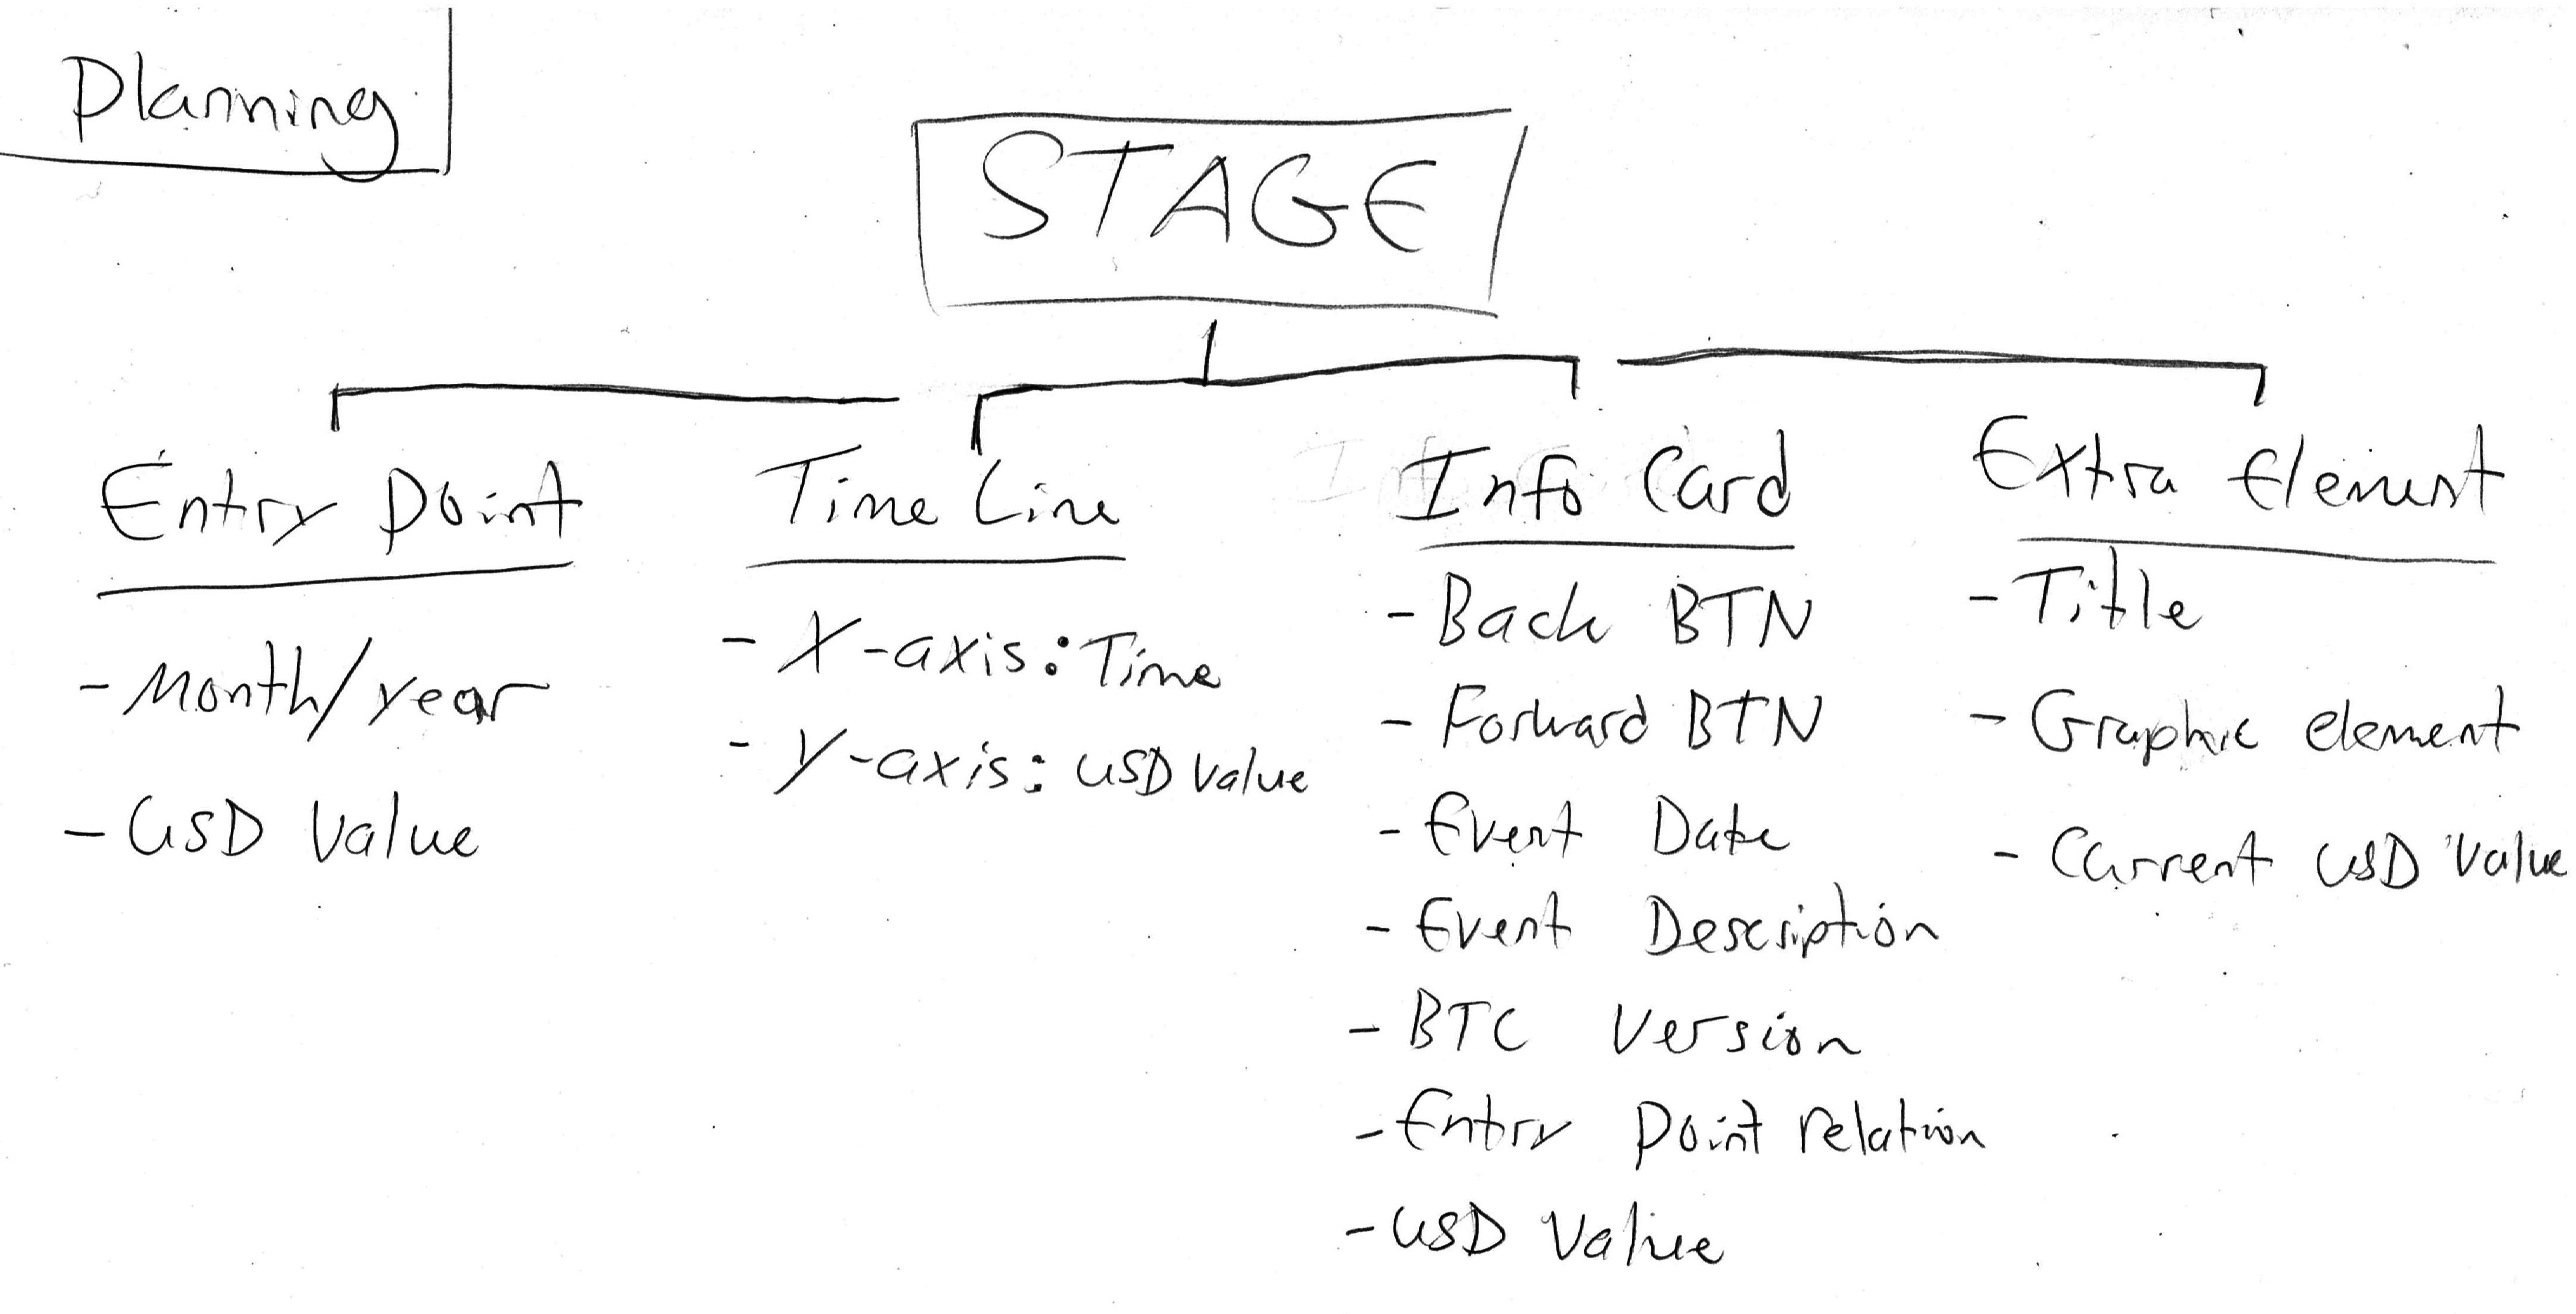 Planning
STAGE
Entry Point
- Month/year
- USD Value
Time Line
- X-axis: Time
- Y-axis: USD Value
Info Card
- Back BTN
- Forward BTN
- Event Date
- Event Description
- BTC Version
- Entry Point relation
- USD Value
Extra Element
- Title
- Graphic element
- Current USD Value